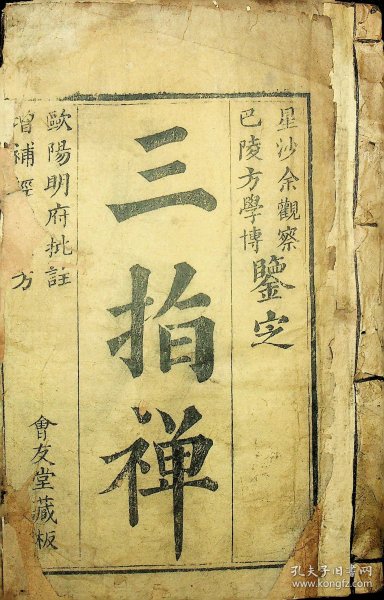 星沙余觀察
巴陵方學博
鑒定
三指禅
歐陽明府批註
增補經 方
會友堂藏板
孔夫子旧书网
www.kongfz.com